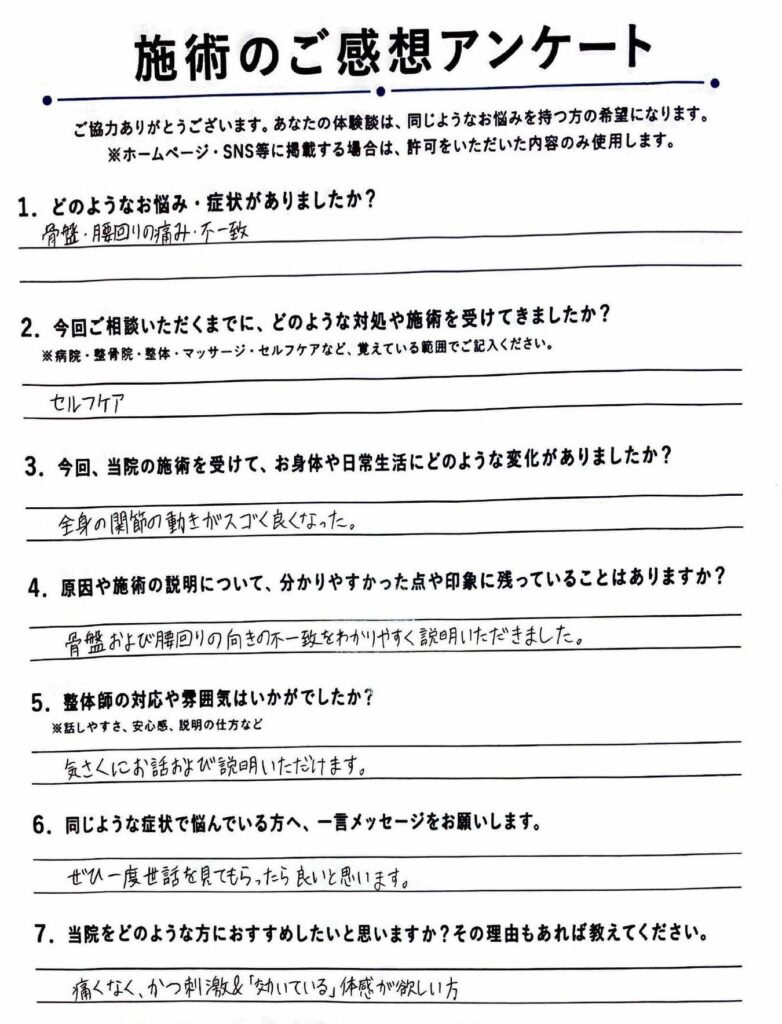 施術のご感想アンケート
ご協力ありがとうございます。あなたの体験談は、同じようなお悩みを持つ方の希望になります。
※ホームページ・SNS等に掲載する場合は、許可をいただいた内容のみ使用します。
1. どのようなお悩み・症状がありましたか？
骨盤・腰回りの痛み・不一致
2. 今回ご相談いただくまでに、どのような対処や施術を受けてきましたか？
※病院・整骨院・整体・マッサージ・セルフケアなど、覚えている範囲でご記入ください。
セルフケア
3. 今回、当院の施術を受けて、お身体や日常生活にどのような変化がありましたか？
全身の関節の動きがスゴく良くなった。
4. 原因や施術の説明について、分かりやすかった点や印象に残っていることはありますか？
骨盤および腰回りの向きの不一致をわかりやすく説明いただきました。
5. 整体師の対応や雰囲気はいかがでしたか？
※話しやすさ、安心感、説明の仕方など
気さくにお話および説明いただけます。
6. 同じような症状で悩んでいる方へ、一言メッセージをお願いします。
ぜひ一度世話を見てもらったら良いと思います。
7. 当院をどのような方におすすめしたいと思いますか？その理由もあれば教えてください。
痛くなく、かつ刺激&「効いている」体感が欲しい方